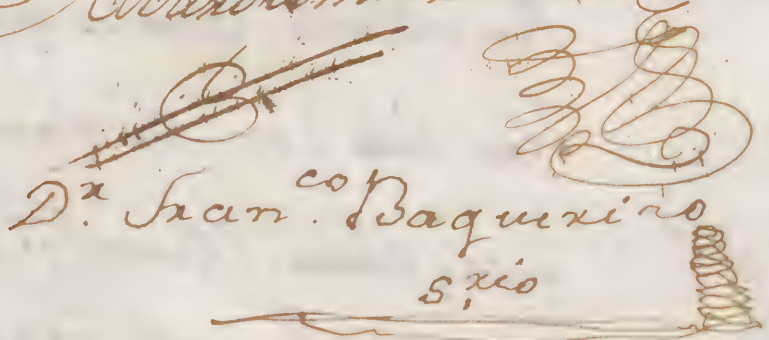 D.r Fran.co Baquerizo
S.rio